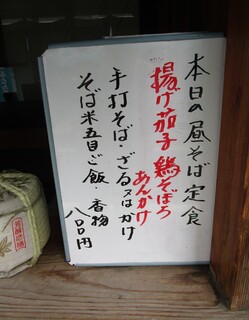 本日の昼そば定食
揚げ茄子 鶏そぼろ
あんかけ
手打そば・ざる又はかけ
そば米五目ご飯・香物
八〇〇円